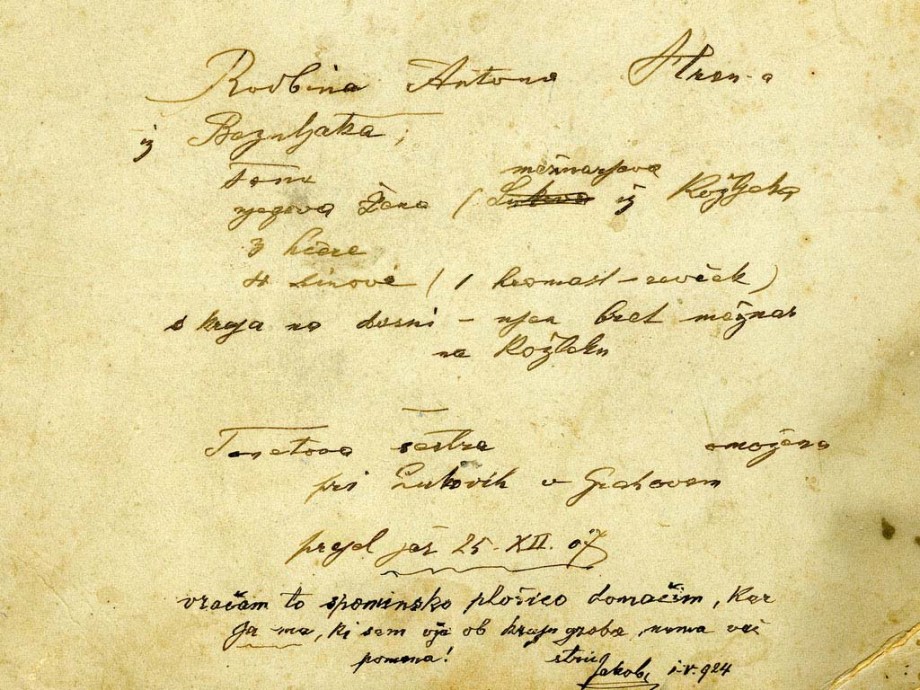 Rodbina Antona Stren-a
iz Bezuljaka,
Tone mežnarjeva
njegova Žena ( iz Rožljeka
3 hčere
4 sinovi ( 1 kromast - revček )
s kraja na desni - njen brat mežnar
na Rožleku
Tonetova sestra omožena
pri Lukovih v Grahovem
prejel jaz 25. XII. 07
vračam to spominsko ploščico domačim, Ker
za me, ki sem vže ob kraju groba, nema več
pomena! stric Jakob, 1.V.924